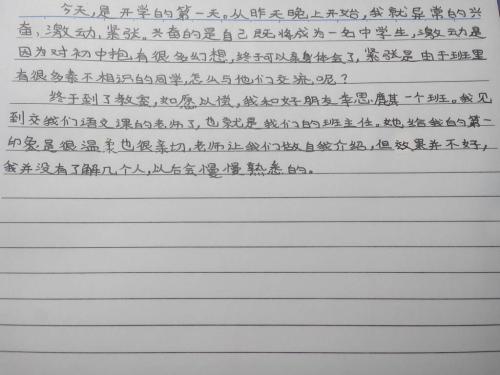 今天,是开学的第一天。从昨天晚上开始,我就异常的兴
奋、激动、紧张。兴奋的是自己既将成为一名中学生,激动是
因为对初中抱有很多幻想,终于可以亲身体会了,紧张是由于班里
有很多素不相识的同学,怎么与他们交流呢?
终于到了教室,如愿以偿,我和好朋友李思 其一个班。我见
到交我们语文课的老师了,也就是我们的班主任。她给我的第一
印象是很温柔也很亲切,老师让我们做自我介绍,但效果并不好,
我并没有了解几个人,以后会慢慢熟悉的。